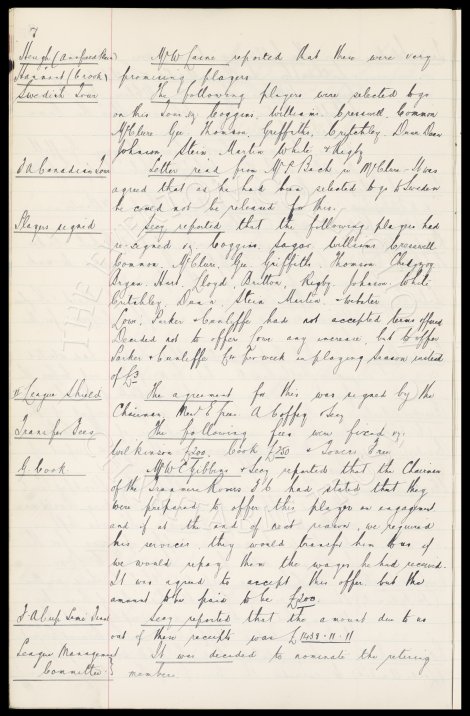 7
Hough (Annfield Plain)
Mr W Caine reported that there were very
Stannard (Crook)
promising players
Swedish Tour
The following players were selected to go
on this Tour viz Coggins, Williams, Cresswell, Common
McClure, Gee, Thomson, Griffiths, Critchley, Dunn, Dean
Johnson, Stein, Martin, White & Rigby
F A Canadian Tour
Letter read from Mr P Bach re McClure. It was
agreed that as he had been selected to go to Sweden
he could not be released for this.
Players re-signed
Secy reported that the following players had
re-signed viz Coggins, Sagar, Williams, Cresswell
Common, McClure, Gee, Griffiths, Thomson, Chedgzoy
Bryan, Hart, Lloyd, Britton, Rigby, Johnson, White
Critchley, Dunn, Stein, Martin, Webster
Lowe, Parker & Cunliffe had not accepted terms offered
Decided not to offer Lowe any increase, but to offer
Parker & Cunliffe £4 per week in playing season instead
of £3
League Shield
The agreement for this was signed by the
Chairman, Mr E Green, A Coffey & Secy
Transfer Fees
The following fees were fixed viz
Wilkinson £200, Cook £250 & Jones Free
G. Cook
Mr W C Gibbins & Secy reported that the Chairman
of the Tranmere Rovers F C had stated that they
were prepared to offer this player an engagement
and if at the end of next season, we required
his services, they would transfer him to us if
we would repay them the wages he had received.
It was agreed to accept this offer but the
amount to be paid to be £200
F A Cup Semi Final
Secy reported that the amount due to us
out of these receipts was £1439 - 11 - 11
League Management
It was decided to nominate the retiring
Committee
members.